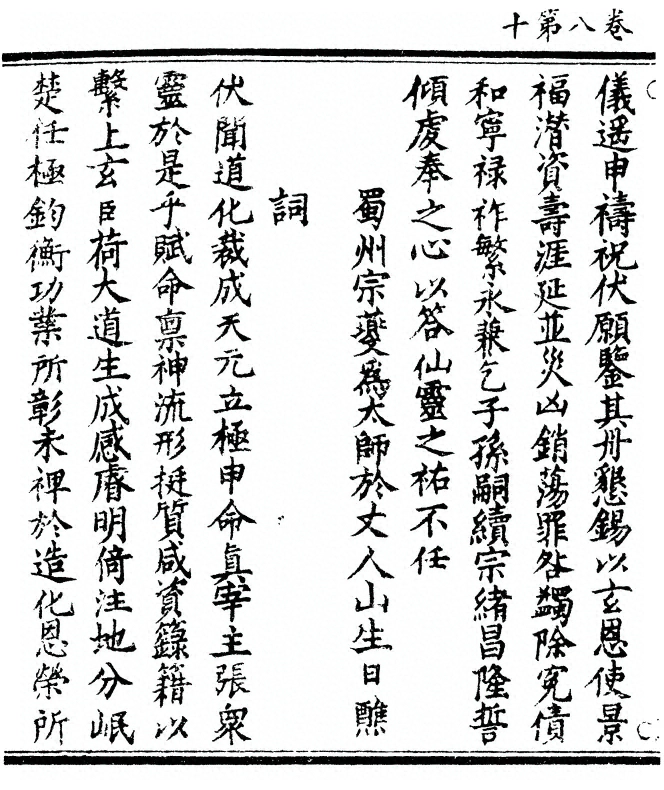 卷八第十
儀遥申禱祝伏願鑒其丹懇錫以玄恩使景
福潛資壽涯延並災凶銷蕩罪咎蠲除冤債
和寧禄祚繁永兼乞子孫嗣續宗緒昌隆誓
傾虔奉之心以答仙靈之祐不任
蜀州宗夔爲太師於丈人山生日醮
詞
伏聞道化裁成天元立極申命真宰主張衆
靈於是乎賦命禀神流形挺質咸資籙籍以
繫上玄臣荷大道生成感膺明倚注地分岷
楚任極鈞衡功業所彰未裨於造化恩榮所